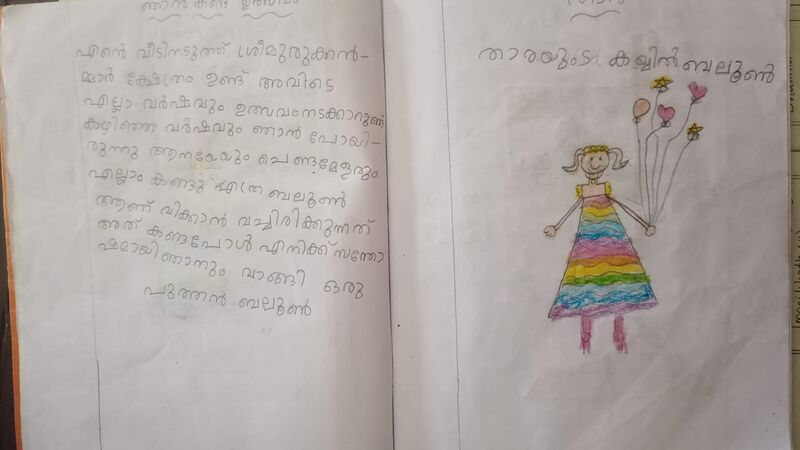 ഞാൻ കണ്ട ഉത്സവം
എന്റെ വീടിനടുത്ത് ശ്രീമുരുക്കൻ-
മ്മാർ ക്ഷേത്രം ഉണ്ട് അവിടെ
എല്ലാ വർഷവും ഉത്സവംനടക്കാറുണ്ട്
കഴിഞ്ഞ വർഷവും ഞാൻ പോയി-
രുന്നു ആനയേയും ചെണ്ടമേളരും
എല്ലാം കണ്ടു എത്ര ബലൂൺ
ആണ് വിക്കാൻ വച്ചിരിക്കുന്നത്
അത് കണ്ടപോൾ എനിക്ക് സന്തോ
ഷമായിഞാനും വാങ്ങി ഒരു
പുത്തൻ ബലൂൺ
താരയുംടെ കയ്യിൽ ബലൂൺ